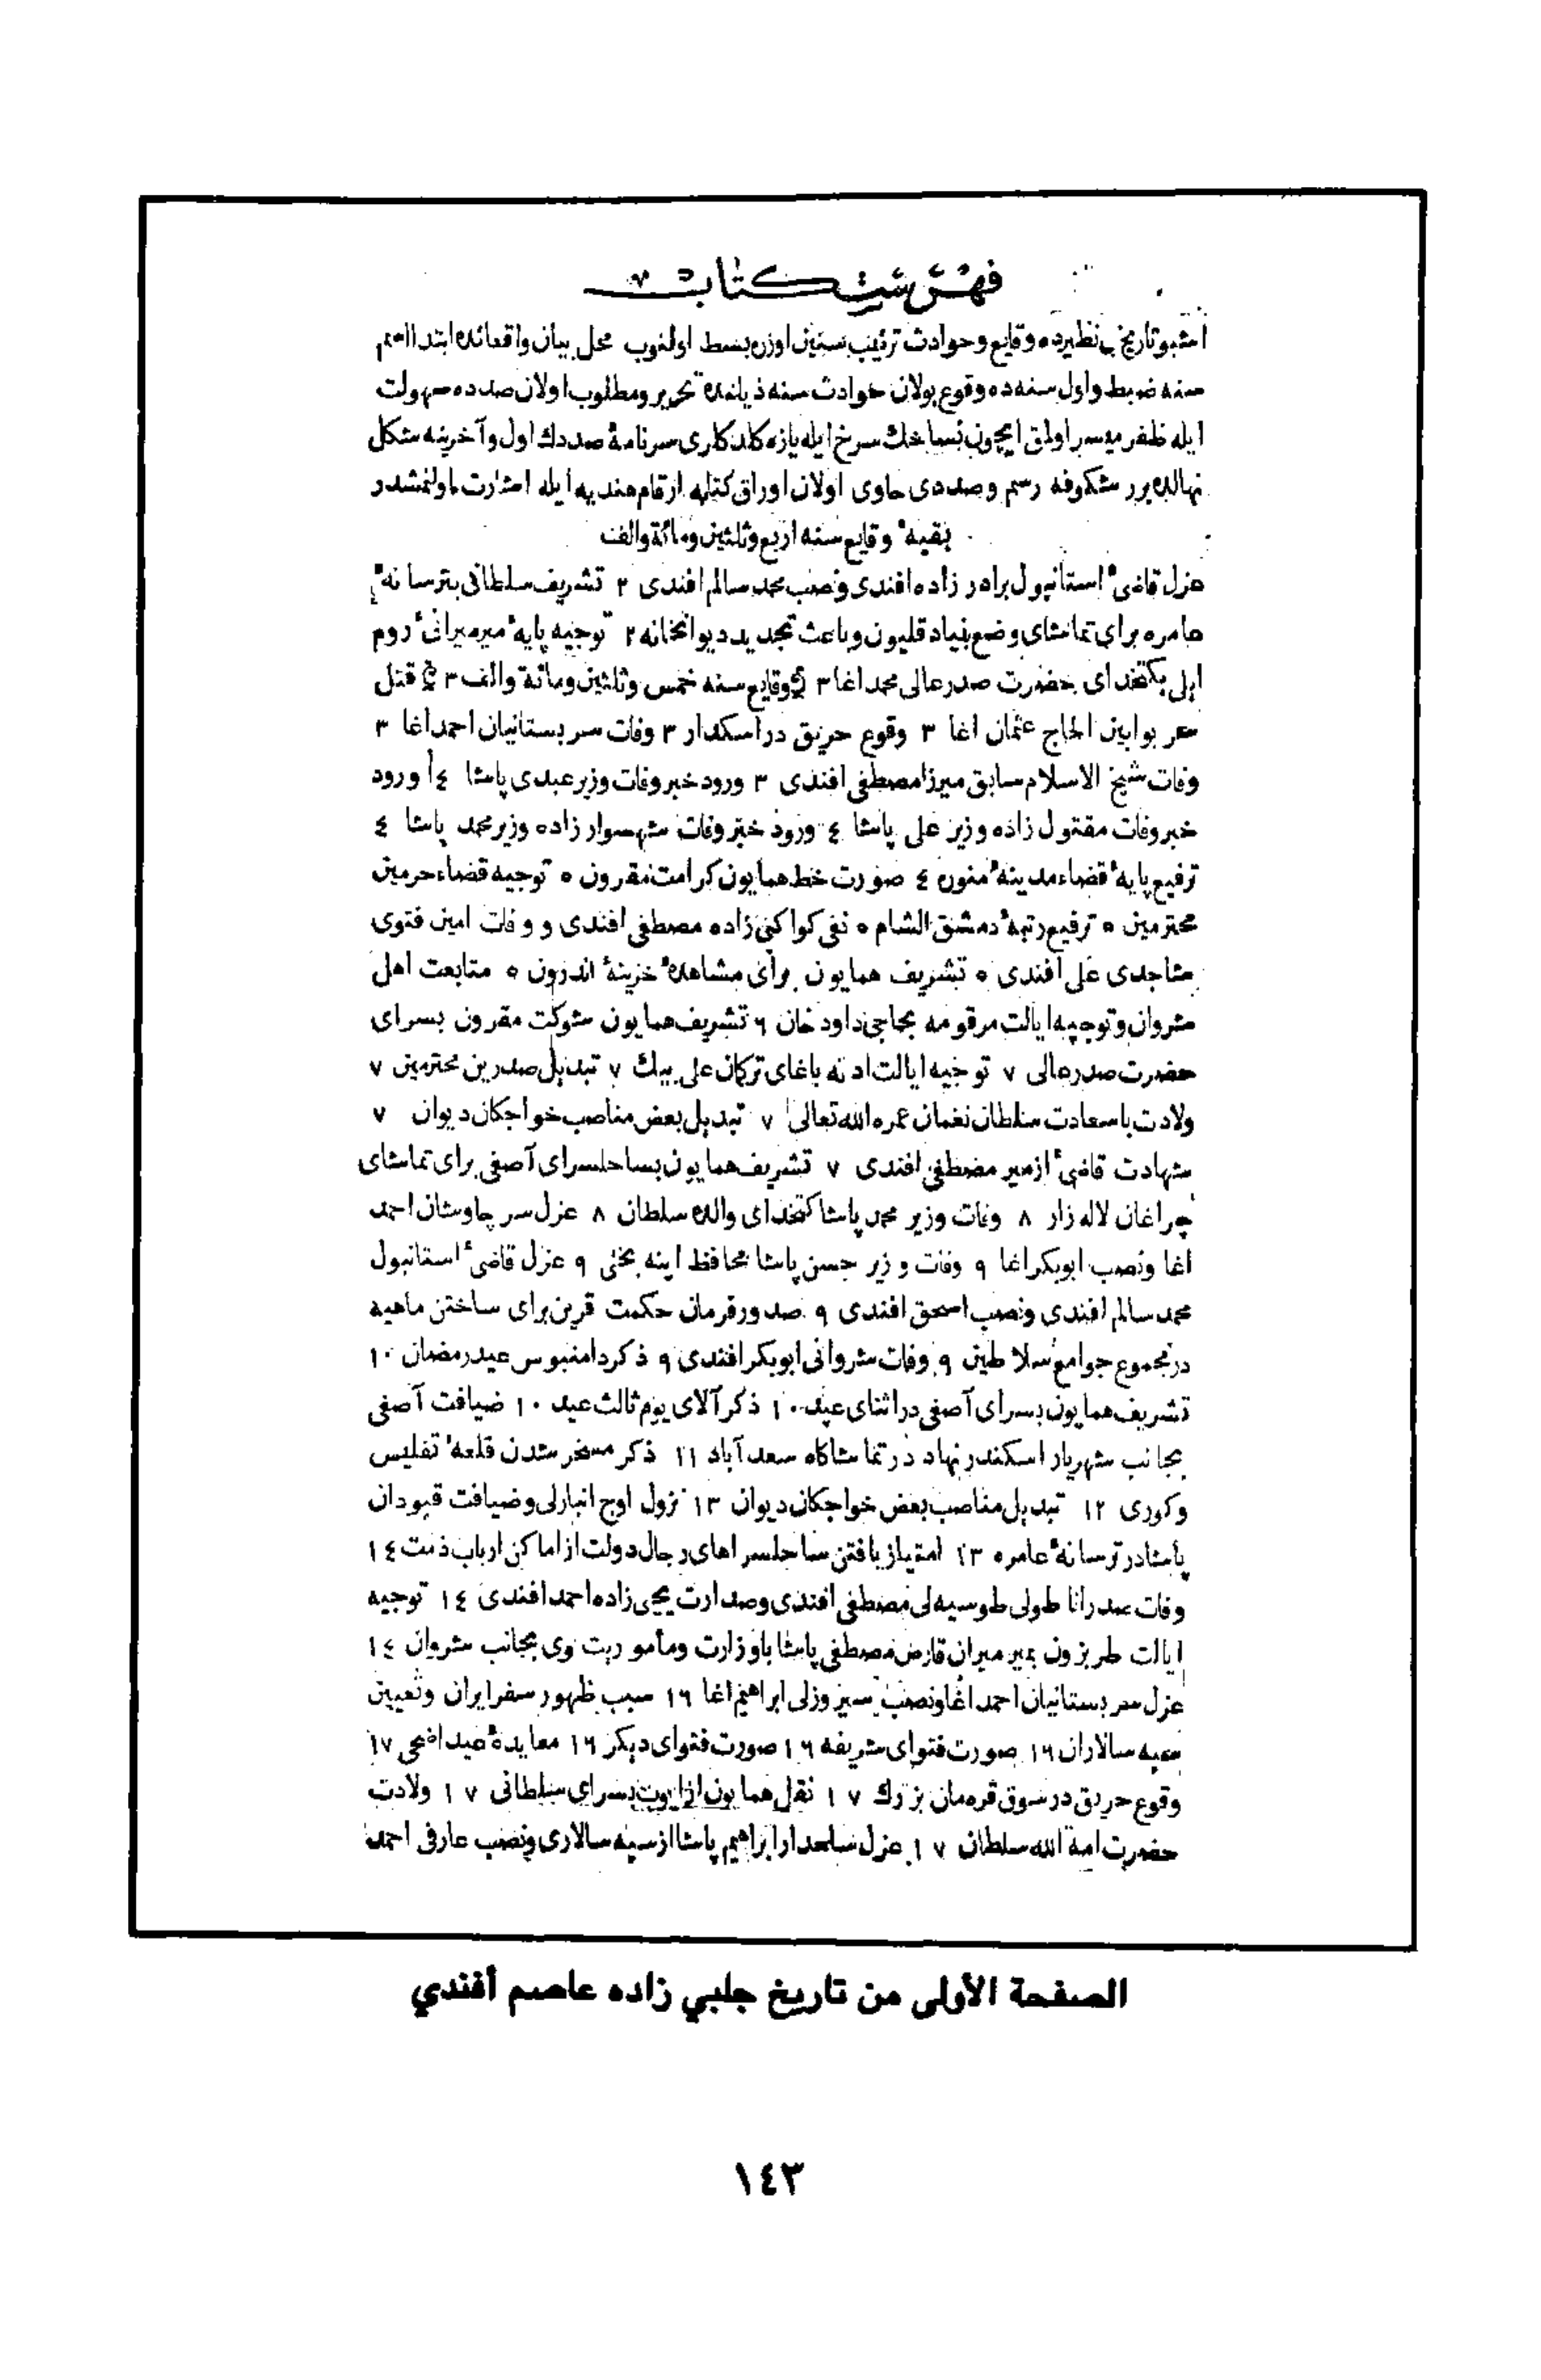 فهرست كتاب
اشبو تاريخ بى نظيرده وقايع وحوادث ترتيب سنين اوزره بسط اولنوب محل بيان واقعاتده ابتدا اسم
سنه ضبط واول سنه ده وقوع بولان حوادث سنه ذيلنده تحرير ومطلوب اولان صدده سهولت
ايله ظفر ميسر اولمق ايچون سرخ ايله يازه كلدكلرى سرنامهٔ صددك اول وآخرينه شكل
نهالده برر شكوفه رسم وصددى حاوى اولان اوراق كتابه ارقام هنديه ايله اشارت اولنمشدر
بقيهٔ وقايع سنه اربع وثلثين ومائة والف
عزل قاضئ استانبول برادر زاده افندى ونصب محمد سالم افندى ٢ تشريف سلطانى بترسانهٔ
عامره براى تماشاى وضع بنياد قليون وباعث تجديد ديوانخانه ٢ توجيه پايهٔ ميرميرانئ روم
ايلى بكتخداى حضرت صدر عالى محمد اغا ٣ وقايع سنه خمس وثلثين ومائة والف ٣ قتل
سر بوابين الحاج عثمان اغا ٣ وقوع حريق در اسكدار ٣ وفات سر بستانيان احمد اغا ٣
وفات شيخ الاسلام سابق ميرزا مصطفى افندى ٣ ورود خبر وفات وزير عبدى پاشا ٤ ورود
خبر وفات مقتول زاده وزير على پاشا ٤ ورود خبر وفات شهسوار زاده وزير محمد پاشا ٤
ترفيع پايهٔ قضاء مدينهٔ منوره ٤ صورت خط همايون كرامت مقرون ٥ توجيه قضاء حرمين
محترمين ٥ ترفيع رتبهٔ دمشق الشام ٥ نفى كواكبى زاده مصطفى افندى و وفات امين فتوى
مشاجدى على افندى ٥ تشريف همايون براى مشاهدهٔ خزينهٔ اندرون ٥ متابعت اهل
شروان وتوجيه ايالت مرقومه بحاجى داود خان ٦ تشريف همايون شوكت مقرون بسراى
حضرت صدر عالى ٧ توجيه ايالت ادنه باغاى تركمان على بيك ٧ تبديل صدرين محترمين ٧
ولادت باسعادت سلطان نعمان عمره الله تعالى ٧ تبديل بعض مناصب خواجكان ديوان ٧
شهادت قاضئ ازمير مصطفى افندى ٧ تشريف همايون بساحلسراى آصفى براى تماشاى
چراغان لاله زار ٨ وفات وزير محمد پاشا كتخداى والده سلطان ٨ عزل سر چاوشان احمد
اغا ونصب ابوبكر اغا ٩ وفات وزير حسن پاشا محافظ اينه بختى ٩ عزل قاضئ استانبول
محمد سالم افندى ونصب اسحق افندى ٩ صدور فرمان حكمت قرين براى ساختن ماهيه
در مجموع جوامع سلاطين ٩ وفات شروانى ابوبكر افندى ٩ ذكر دامنبوس عيد رمضان ١٠
تشريف همايون بسراى آصفى در اثناى عيد ١٠ ذكر آلاى يوم ثالث عيد ١٠ ضيافت آصفى
بجانب شهريار اسكندر نهاد در تماشاكاه سعد آباد ١١ ذكر مسخر شدن قلعهٔ تفليس
وكورى ١٢ تبديل مناصب بعض خواجكان ديوان ١٣ نزول اوج انبارلى وضيافت قپودان
پاشا در ترسانهٔ عامره ١٣ امتياز يافتن ساحلسراهاى رجال دولت از اماكن ارباب ذمت ١٤
وفات صدر اناطولى طوسيه لى مصطفى افندى وصدارت يحيى زاده احمد افندى ١٤ توجيه
ايالت طربزون بمير ميران قارص مصطفى پاشا باوزارت ومأموريت وى بجانب شروان ١٤
عزل سر بستانيان احمد اغا ونصب سيروزلى ابراهيم اغا ١٦ سبب ظهور سفر ايران وتعيين
سپه سالاران ١٦ صورت فتواى شريفه ١٦ صورت فتواى ديكر ١٦ معايدهٔ عيد اضحى ١٧
وقوع حريق در سوق قره مان بزرك ١٧ نقل همايون از ايوب بسراى سلطانى ١٧ ولادت
حضرت امة الله سلطان ١٧ عزل سلحدار ابراهيم پاشا از سپه سالارى ونصب عارفى احمد
الصفحة الأولى من تاريخ جلبي زاده عاصم أفندي
١٤٣